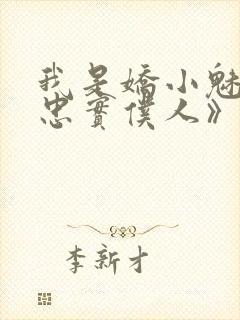 我是嬌小魅
忠實僕人》
李新才